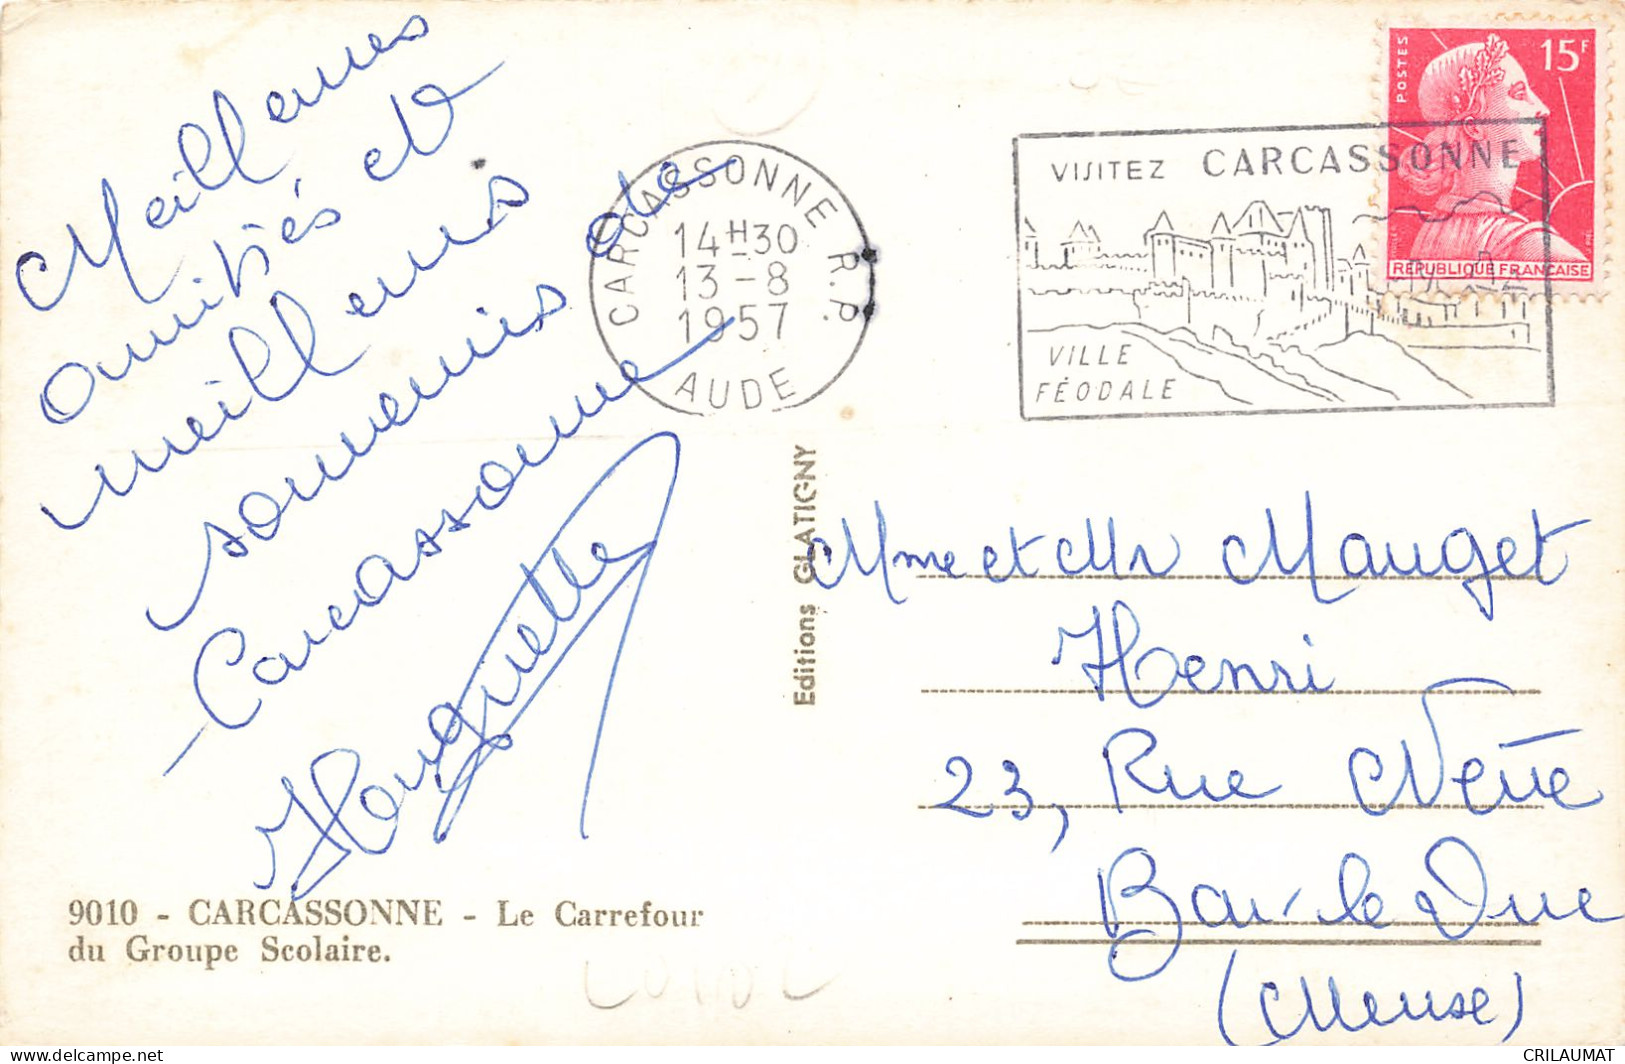 Meilleures
amitiés et
meilleurs
souvenirs de
Carcassonne
Huguette
9010 - CARCASSONNE - Le Carrefour
du Groupe Scolaire.
Editions GLATIGNY
CARCASSONNE R.P.
14H30
13-8
1957
AUDE
VISITEZ CARCASSONNE
VILLE
FÉODALE
POSTES
15F
REPUBLIQUE FRANÇAISE
Mme et Mr Mauget
Henri
23, Rue Nève
Bar-le Duc
(Meuse)
CRILAUMAT